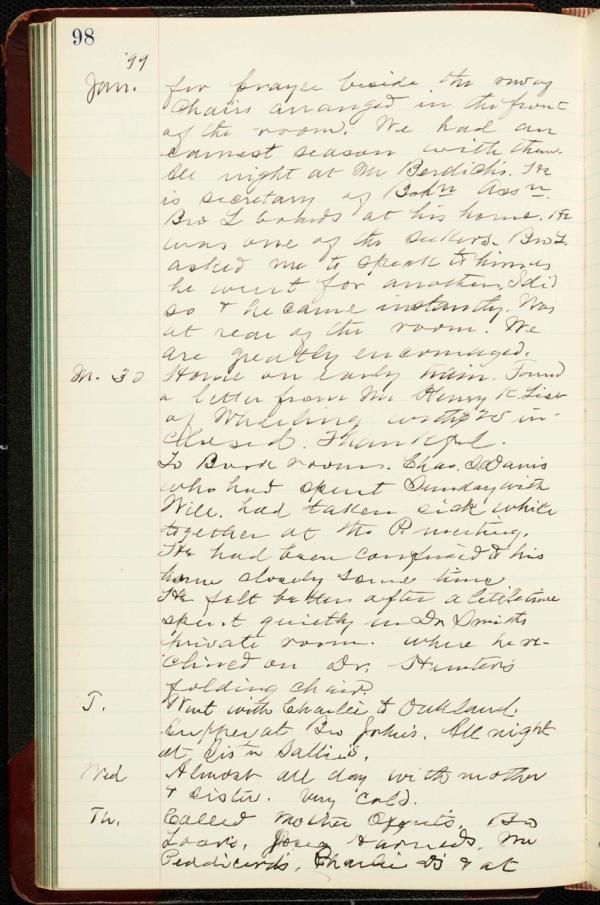 98
'99
Jan. for prayer beside the row of
chairs arranged in the front
of the room. We had an
earnest season with them.
All night at Mr
is secretary of Assn.
Bro L boards at his home. He
was one of the seekers. Bro L.
asked me to speak to him as
he went for another. I did
so & he came instantly. Was
at rear of the room. We
are greatly encouraged.
M. 30 Home on early train. Found
a letter from Mr Henry K. List
of Wheeling with in-
closed. Thankful.
To Book room. Chas. Davis
who had spent Sunday with
Will. had taken sick while
together at the P. meeting.
He had been confined to his
home closely some time.
He felt better after a little time
spent quietly in Dr Smiths
private room. where he re-
clined on Dr. Hunter's
folding chair.
T. Went with Charlie to Oakland.
Supper at Bro John's. All night
at Sistr Sallie's.
Wed Almost all day with mother
& sister. Very cold.
Th. Called Mother Bro
Mr
Charlie D's & at